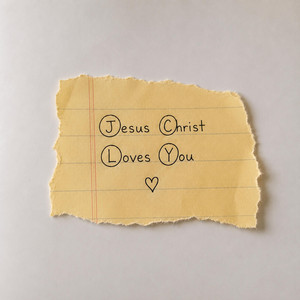 Jesus Christ
Loves You
♡